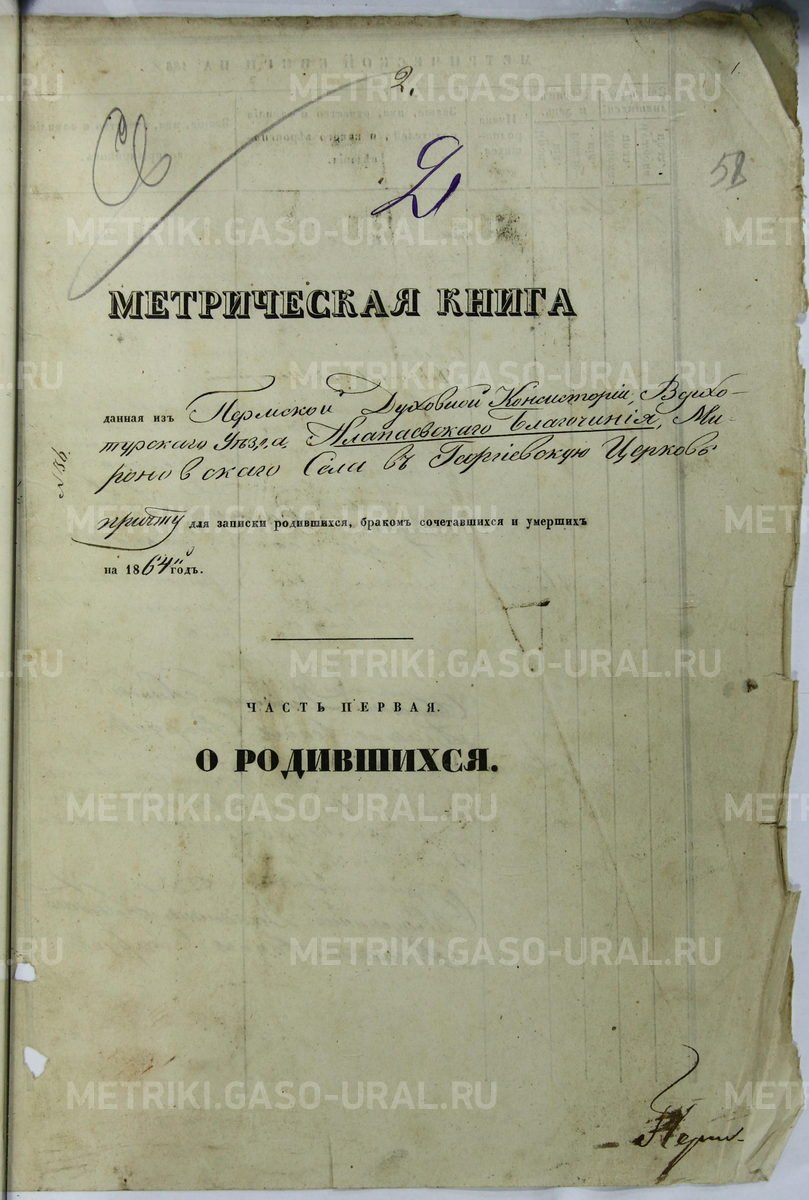 2.
Св
2
58
МЕТРИЧЕСКАЯ КНИГА
данная изъ Пермской Духовной Консисторіи, Верхо-
турскаго Уѣзда, Алапаевскаго Благочинія, Ми-
роновскаго Села въ Георгіевскую Церковь
причту для записки родившихся, бракомъ сочетавшихся и умершихъ
на 1864й годъ.
ЧАСТЬ ПЕРВАЯ.
О РОДИВШИХСЯ.
METRIKI.GASO-URAL.RU